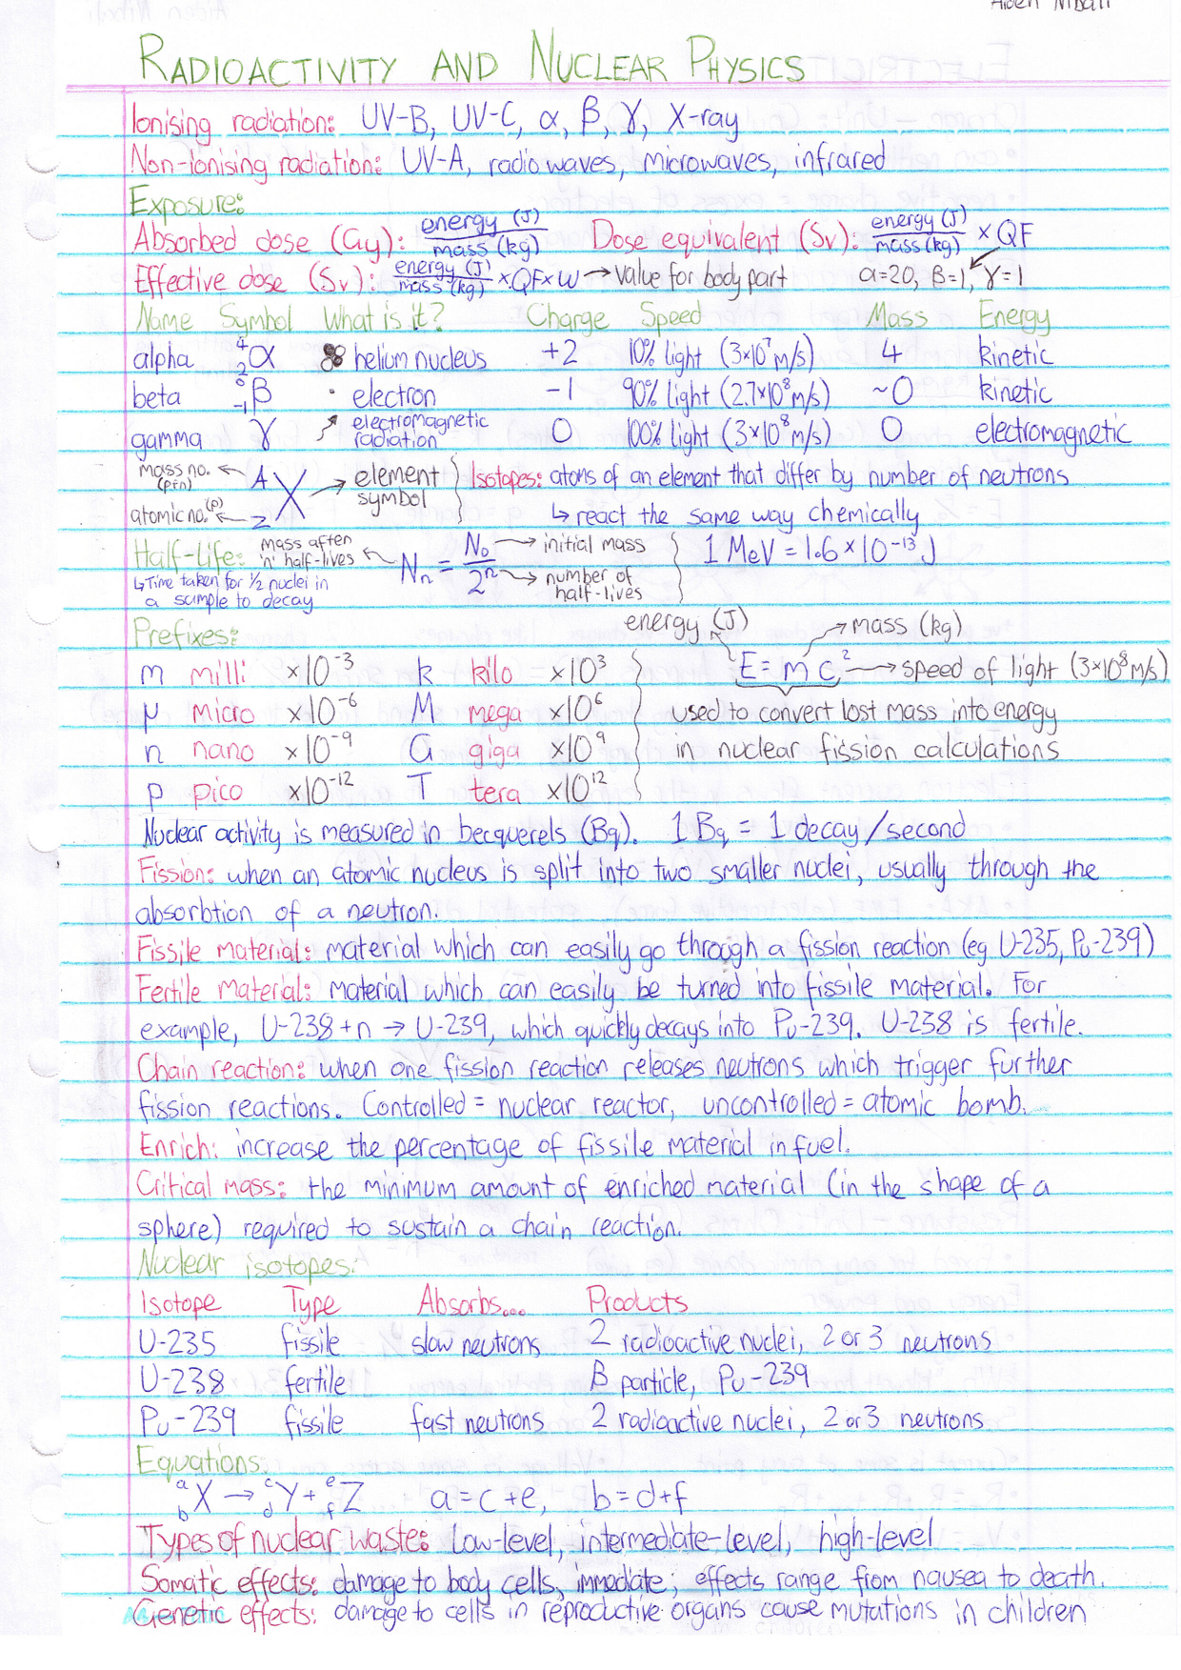 Aiden Nibali
RADIOACTIVITY AND NUCLEAR PHYSICS
Ionising radiation: UV-B, UV-C, α, β, γ, X-ray
Non-ionising radiation: UV-A, radio waves, microwaves, infrared
Exposure:
Absorbed dose (Gy): energy (J) / mass (kg) Dose equivalent (Sv): energy (J) / mass (kg) × QF
Effective dose (Sv): energy (J) / mass (kg) × QF × W → value for body part α=20, β=1, γ=1
Name Symbol What is it? Charge Speed Mass Energy
alpha ⁴₂α helium nucleus +2 10% light (3×10⁷m/s) 4 kinetic
beta ⁰₋₁β electron −1 90% light (2.7×10⁸m/s) ~0 kinetic
gamma γ electromagnetic radiation 0 100% light (3×10⁸m/s) 0 electromagnetic
mass no. (p+n) ← A X → element symbol Isotopes: atoms of an element that differ by number of neutrons
atomic no. (p) ← Z ↳ react the same way chemically
Half-Life: mass after 'n' half-lives ← Nₙ = N₀ / 2ⁿ → initial mass 1 MeV = 1.6 × 10⁻¹³ J
↳ Time taken for ½ nuclei in → number of half-lives
a sample to decay
Prefixes: energy (J) → mass (kg)
m milli ×10⁻³ k kilo ×10³ E = mc² → speed of light (3×10⁸m/s)
μ micro ×10⁻⁶ M mega ×10⁶ used to convert lost mass into energy
n nano ×10⁻⁹ G giga ×10⁹ in nuclear fission calculations
p pico ×10⁻¹² T tera ×10¹²
Nuclear activity is measured in becquerels (Bq). 1 Bq = 1 decay/second
Fission: when an atomic nucleus is split into two smaller nuclei, usually through the
absorbtion of a neutron.
Fissile material: material which can easily go through a fission reaction (eg U-235, Pu-239)
Fertile material: material which can easily be turned into fissile material. For
example, U-238+n → U-239, which quickly decays into Pu-239. U-238 is fertile.
Chain reaction: when one fission reaction releases neutrons which trigger further
fission reactions. Controlled = nuclear reactor, uncontrolled = atomic bomb.
Enrich: increase the percentage of fissile material in fuel.
Critical mass: the minimum amount of enriched material (in the shape of a
sphere) required to sustain a chain reaction.
Nuclear isotopes:
Isotope Type Absorbs... Products
U-235 fissile slow neutrons 2 radioactive nuclei, 2 or 3 neutrons
U-238 fertile β particle, Pu-239
Pu-239 fissile fast neutrons 2 radioactive nuclei, 2 or 3 neutrons
Equations:
ᵃ_b X → ᶜ_d Y + ᵉ_f Z a=c+e, b=d+f
Types of nuclear waste: Low-level, intermediate-level, high-level
Somatic effects: damage to body cells, immediate; effects range from nausea to death.
Genetic effects: damage to cells in reproductive organs cause mutations in children